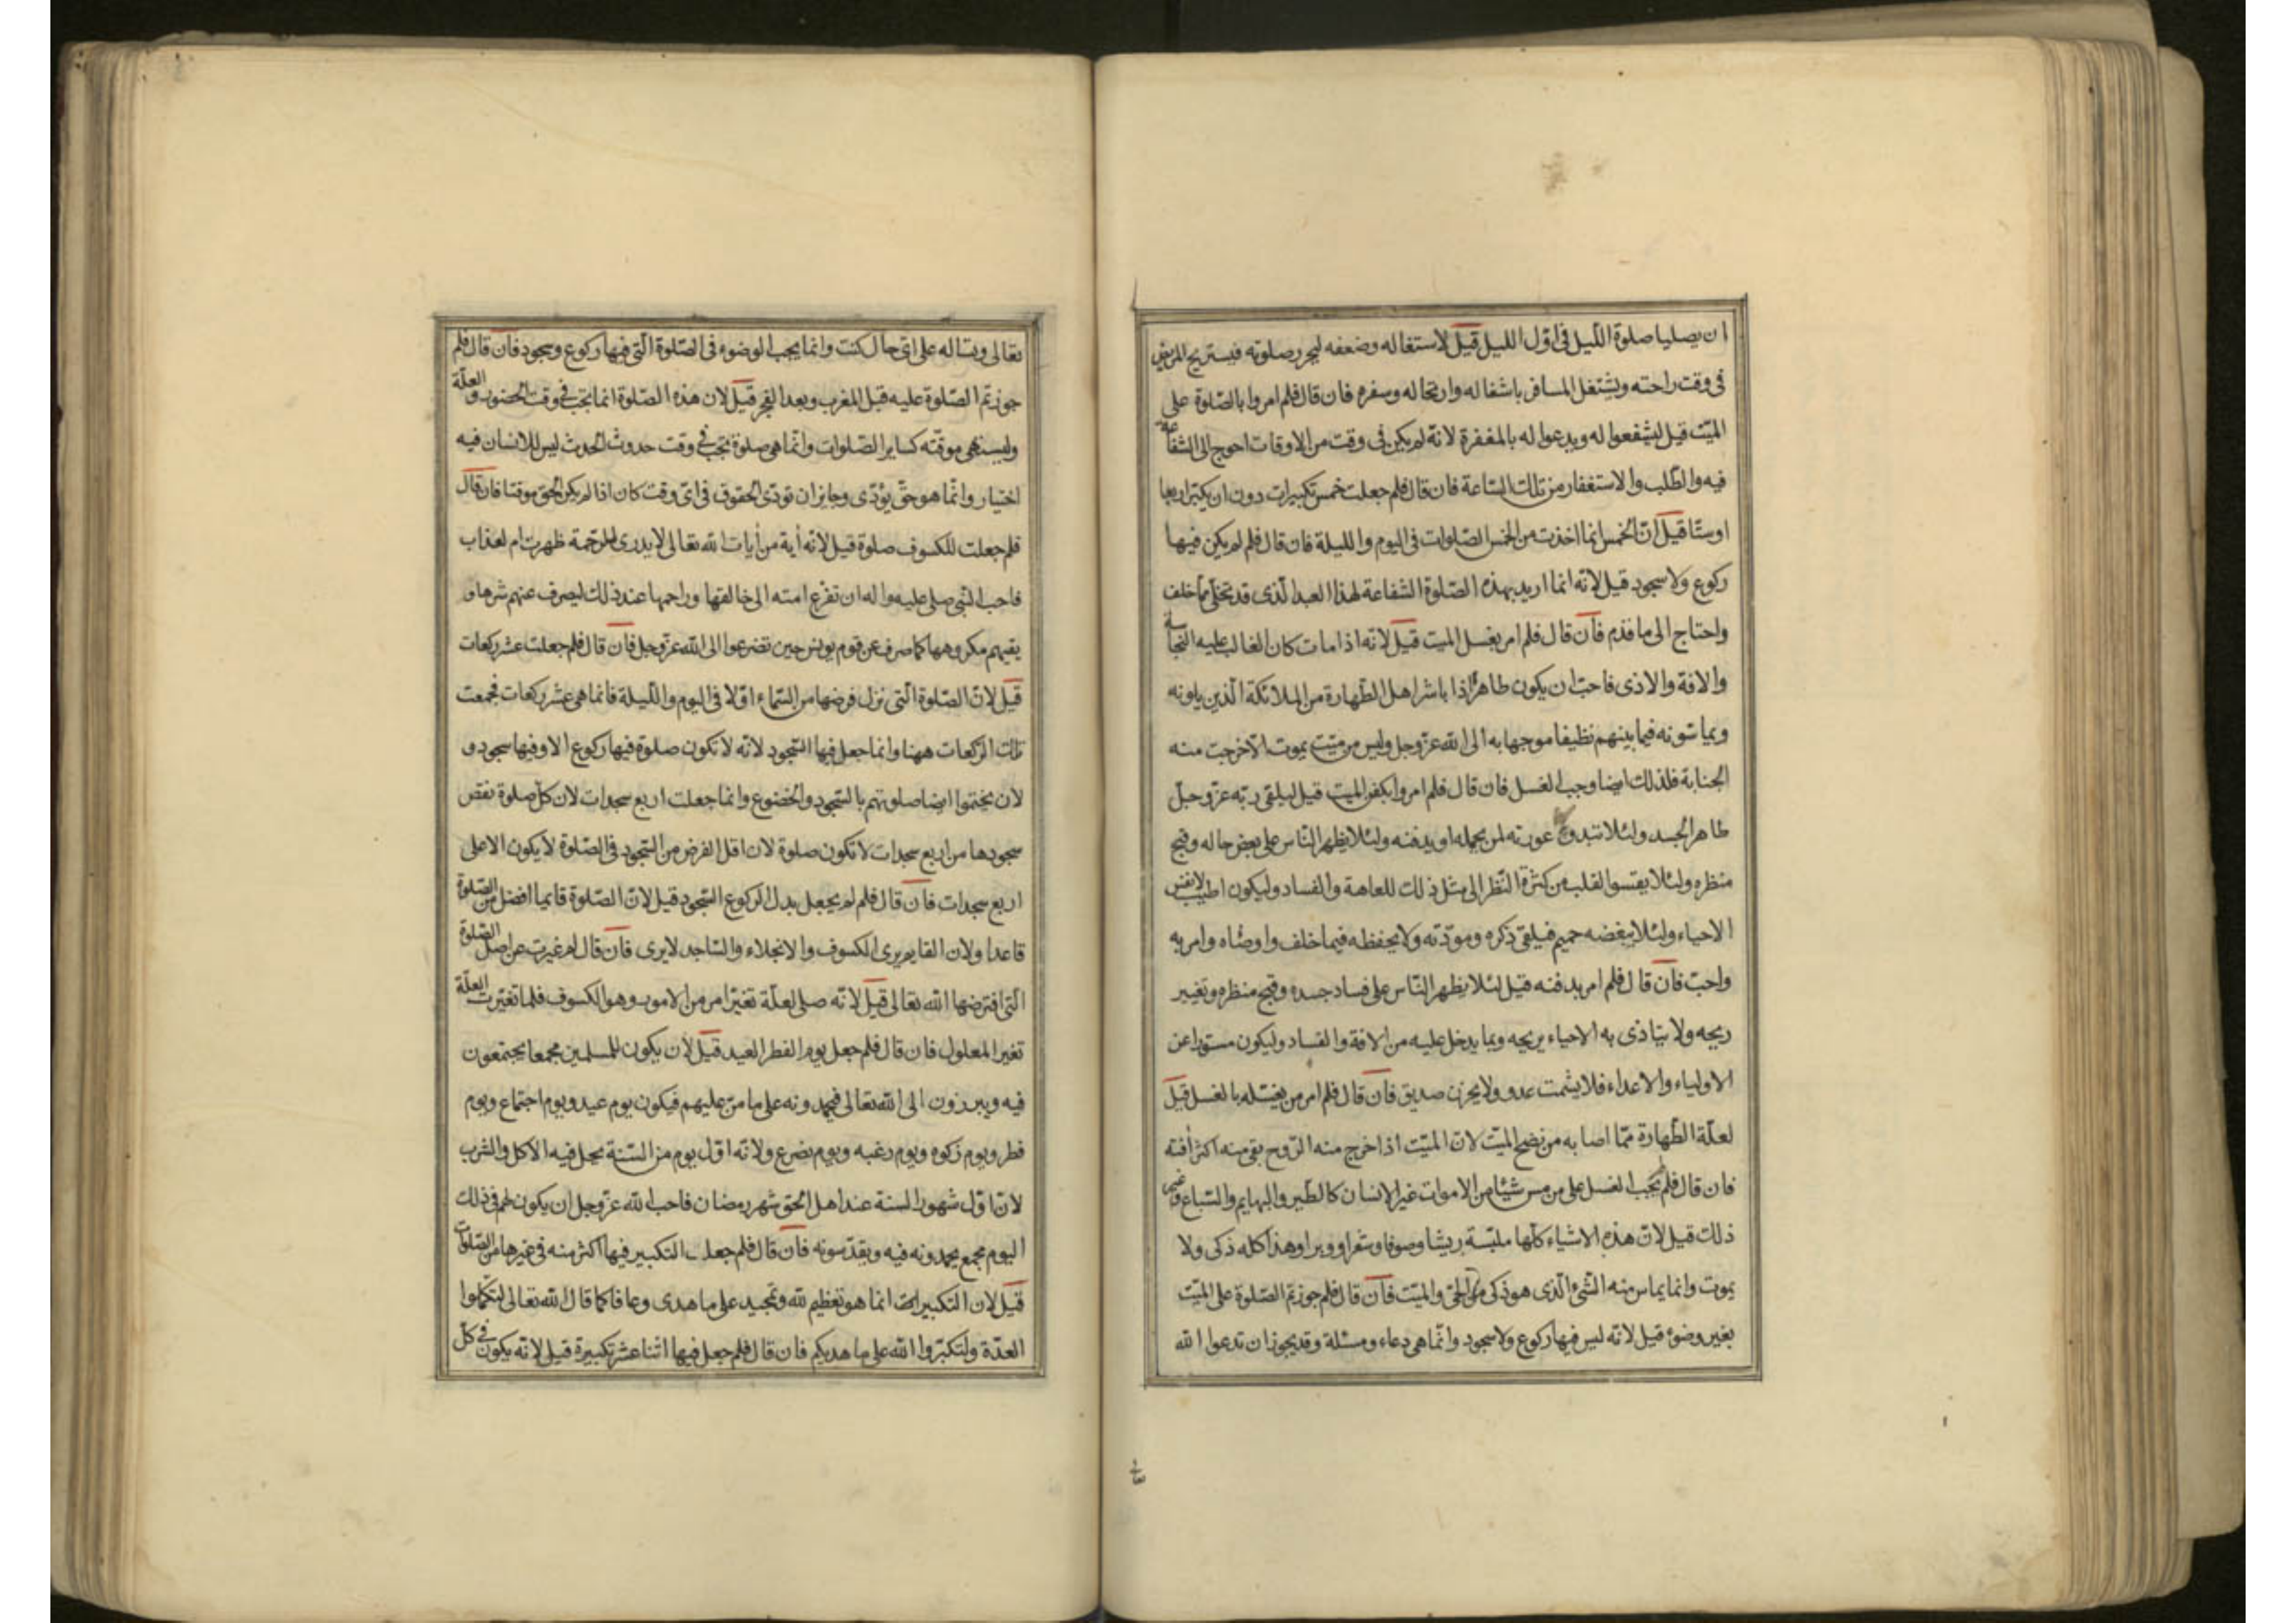 ان يصليا صلوة اللّيل فى اوّل الليل قيل لاستغاله وضعفه ليحرر صلوته فيستريح المريض
فى وقت راحته ويشتغل المسافر باشغاله وارتحاله وسفره فان قال فلم امروا بالصّلوة على
الميّت قيل ليشفعوا له ويدعوا له بالمغفرة لانّه لم يكن فى وقت من الاوقات احوج الى الشفاعة
فيه والطّلب والاستغفار من تلك السّاعة فان قال فلم جعلت خمس تكبيرات دون ان يكبّر اربعا
اوستّا قيل انّ الخمس انما اخذت من الخمس الصّلوات فى اليوم والليلة فان قال فلم لم يكن فيها
ركوع ولا سجود قيل لانّه انما اريد بهذه الصّلوة الشّفاعة لهذا العبد الّذى قد تخلّى مما خلف
واحتاج الى ما قدّم فان قال فلم امر بغسل الميت قيل لانّه اذا مات كان الغالب عليه النجاسة
والافة والاذى فاحبّ ان يكون طاهرًا اذا باشر اهل الطّهارة من الملائكة الّذين يلونه
ويماسّونه فيما بينهم نظيفا موجها به الى الله عزّ وجل وليس من ميّت يموت الا خرجت منه
الجنابة فلذلك ايضا وجب الغسل فان قال فلم امروا بكفن الميت قيل ليلقى ربّه عزّ وجلّ
طاهر الجسد ولئلا تبدو عورته لمن يحمله او يدفنه ولئلا يظهر النّاس على بعض حاله وقبح
منظره ولئلا يقسوا القلب من كثرة النّظر الى مثل ذلك للعاهة والفساد وليكون اطيب لانفس
الاحياء ولئلا يبغضه حميم فيلقى ذكره ومودّته ولا يحفظه فيما خلف واوصاه وامر به
واحبّ فان قال فلم امر بدفنه قيل لئلا يظهر النّاس على فساد جسده وقبح منظره وتغيير
ريحه ولا يتاذى به الاحياء بريحه وبما يدخل عليه من الافة والفساد وليكون مستورا عن
الاولياء والاعداء فلا يشمت عدو ولا يحزن صديق فان قال فلم امر من يغسّله بالغسل قيل
لعلّة الطّهارة ممّا اصابه من نضح الميّت لانّ الميّت اذا خرج منه الرّوح بقى منه اكثر أفته
فان قال فلم لم يجب الغسل على من مس شيئا من الاموات غير الانسان كالطّير والبهايم والسّباع وغير
ذلك قيل لانّ هذه الاشياء كلّها ملبّسة ريشا وصوفا وشعرا ووبرا وهذا كله ذكى ولا
يموت وانما يماس منه الشّئ الّذى هو ذكى من الحىّ والميّت فان قال فلم جوزتم الصّلوة على الميّت
بغير وضوء قيل لانّه ليس فيها ركوع ولا سجود وانّما هى دعاء ومسئلة وقد يجوز ان تدعوا الله
تعالى وتساله على اىّ حال كنت وانما يجب الوضوء فى الصّلوة الّتى فيها ركوع وسجود فان قال فلم
جوزتم الصّلوة عليه قبل المغرب وبعد الفجر قيل لان هذه الصّلوة انما تجب فى وقت الحضور والعلّة
وليست هى موقّته كساير الصّلوات وانّما هى صلوة تجب فى وقت حدوث الحدث ليس للانسان فيه
اختيار وانّما هو حقّ يؤدّى وجايز ان تودّى الحقوق فى اىّ وقت كان اذا لم يكن الحق موقتا فان قال
فلم جعلت للكسوف صلوة قيل لانّه أية من أيات الله تعالى لا يدرى الرحمة ظهرت ام لعذاب
فاحب النّبى صلى عليه واله ان تفزع امته الى خالقها وراحمها عند ذلك ليصرف عنهم شرها و
يقيهم مكروهها كما صرف عن قوم يونس حين تضرعوا الى الله عزّ وجل فان قال فلم جعلت عشر ركعات
قيل لانّ الصّلوة الّتى نزل فرضها من السّماء اوّلا فى اليوم واللّيلة فانما هى عشر ركعات فجمعت
تلك الرّكعات ههنا وانما جعل فيها السّجود لانّه لا تكون صلوة فيها ركوع الا وفيها سجود و
لان يختموا ايضا صلوتهم بالسّجود والخضوع وانما جعلت اربع سجدات لان كلّ صلوة نقص
سجودها من اربع سجدات لا تكون صلوة لان اقل الفرض من السّجود فى الصّلوة لا يكون الا على
اربع سجدات فان قال فلم لم يجعل بدل الركوع السّجود قيل لانّ الصّلوة قايما افضل من الصّلوة
قاعدا ولان القايم يرى الكسوف والانجلاء والسّاجد لا يرى فان قال لم غيرت عن اصل الصّلوة
الّتى افترضها الله تعالى قيل لانّه صلى لعلّة تغيّر امر من الامور وهو الكسوف فلما تغيّرت العلّة
تغير المعلول فان قال فلم جعل يوم الفطر العيد قيل لان يكون للمسلمين مجمعا يجتمعون
فيه ويبرزون الى الله تعالى فيحمدونه على ما منّ عليهم فيكون يوم عيد ويوم اجتماع ويوم
فطر ويوم زكوة ويوم رغبة ويوم تضرع ولانّه اوّل يوم من السّنة يحل فيه الاكل والشرب
لانّ اوّل شهور السنة عند اهل الحق شهر رمضان فاحب الله عزّ وجل ان يكون لهم فى ذلك
اليوم مجمع يحمدونه فيه ويقدّسونه فان قال فلم جعل التكبير فيها اكثر منه فى غيرها من الصّلوات
قيل لان التكبير انما هو تعظيم لله وتمجيد على ما هدى وعافا كما قال الله تعالى لتكملوا
العدّة ولتكبّروا الله على ما هديكم فان قال فلم جعل فيها اثنا عشر تكبيرة قيل لانّه يكون فى كلّ